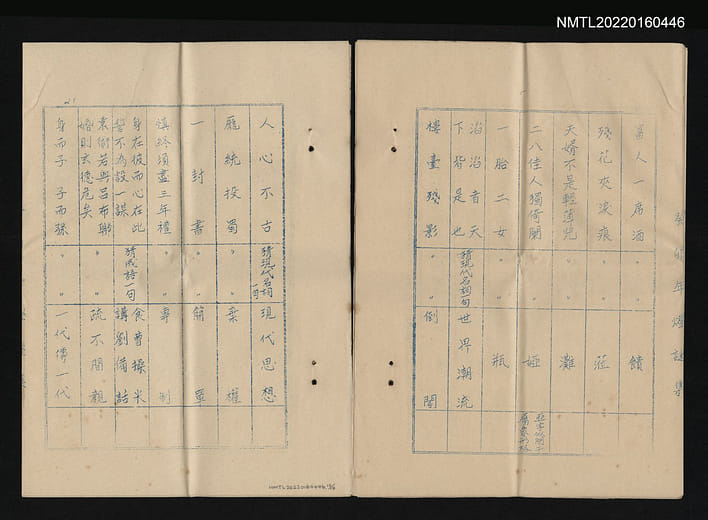 NMTL20220160446
富人一席酒 〃 饋
殘花夾淚痕 〃 蒞
天婿不是輕薄兒 〃 灘
二八佳人獨倚闌 〃 婭
一胎二女 〃 瓶
滔滔者天下皆是也 猜現代名詞一句 世界潮流
樓臺殘影 〃 倒閣
人心不古 猜現代名詞一句 現代思想
龐統投蜀 〃 棄權
一封書 〃 簡單
慎終須盡三年禮 〃 專制
身在彼而心在此誓不為設一謀 猜成語一句 食曹操米講劉備話
袁術若與呂布聯婚則玄德危矣 〃 疏不間親
身而子 子而孫 〃 一代傳一代
NMTL20220160446